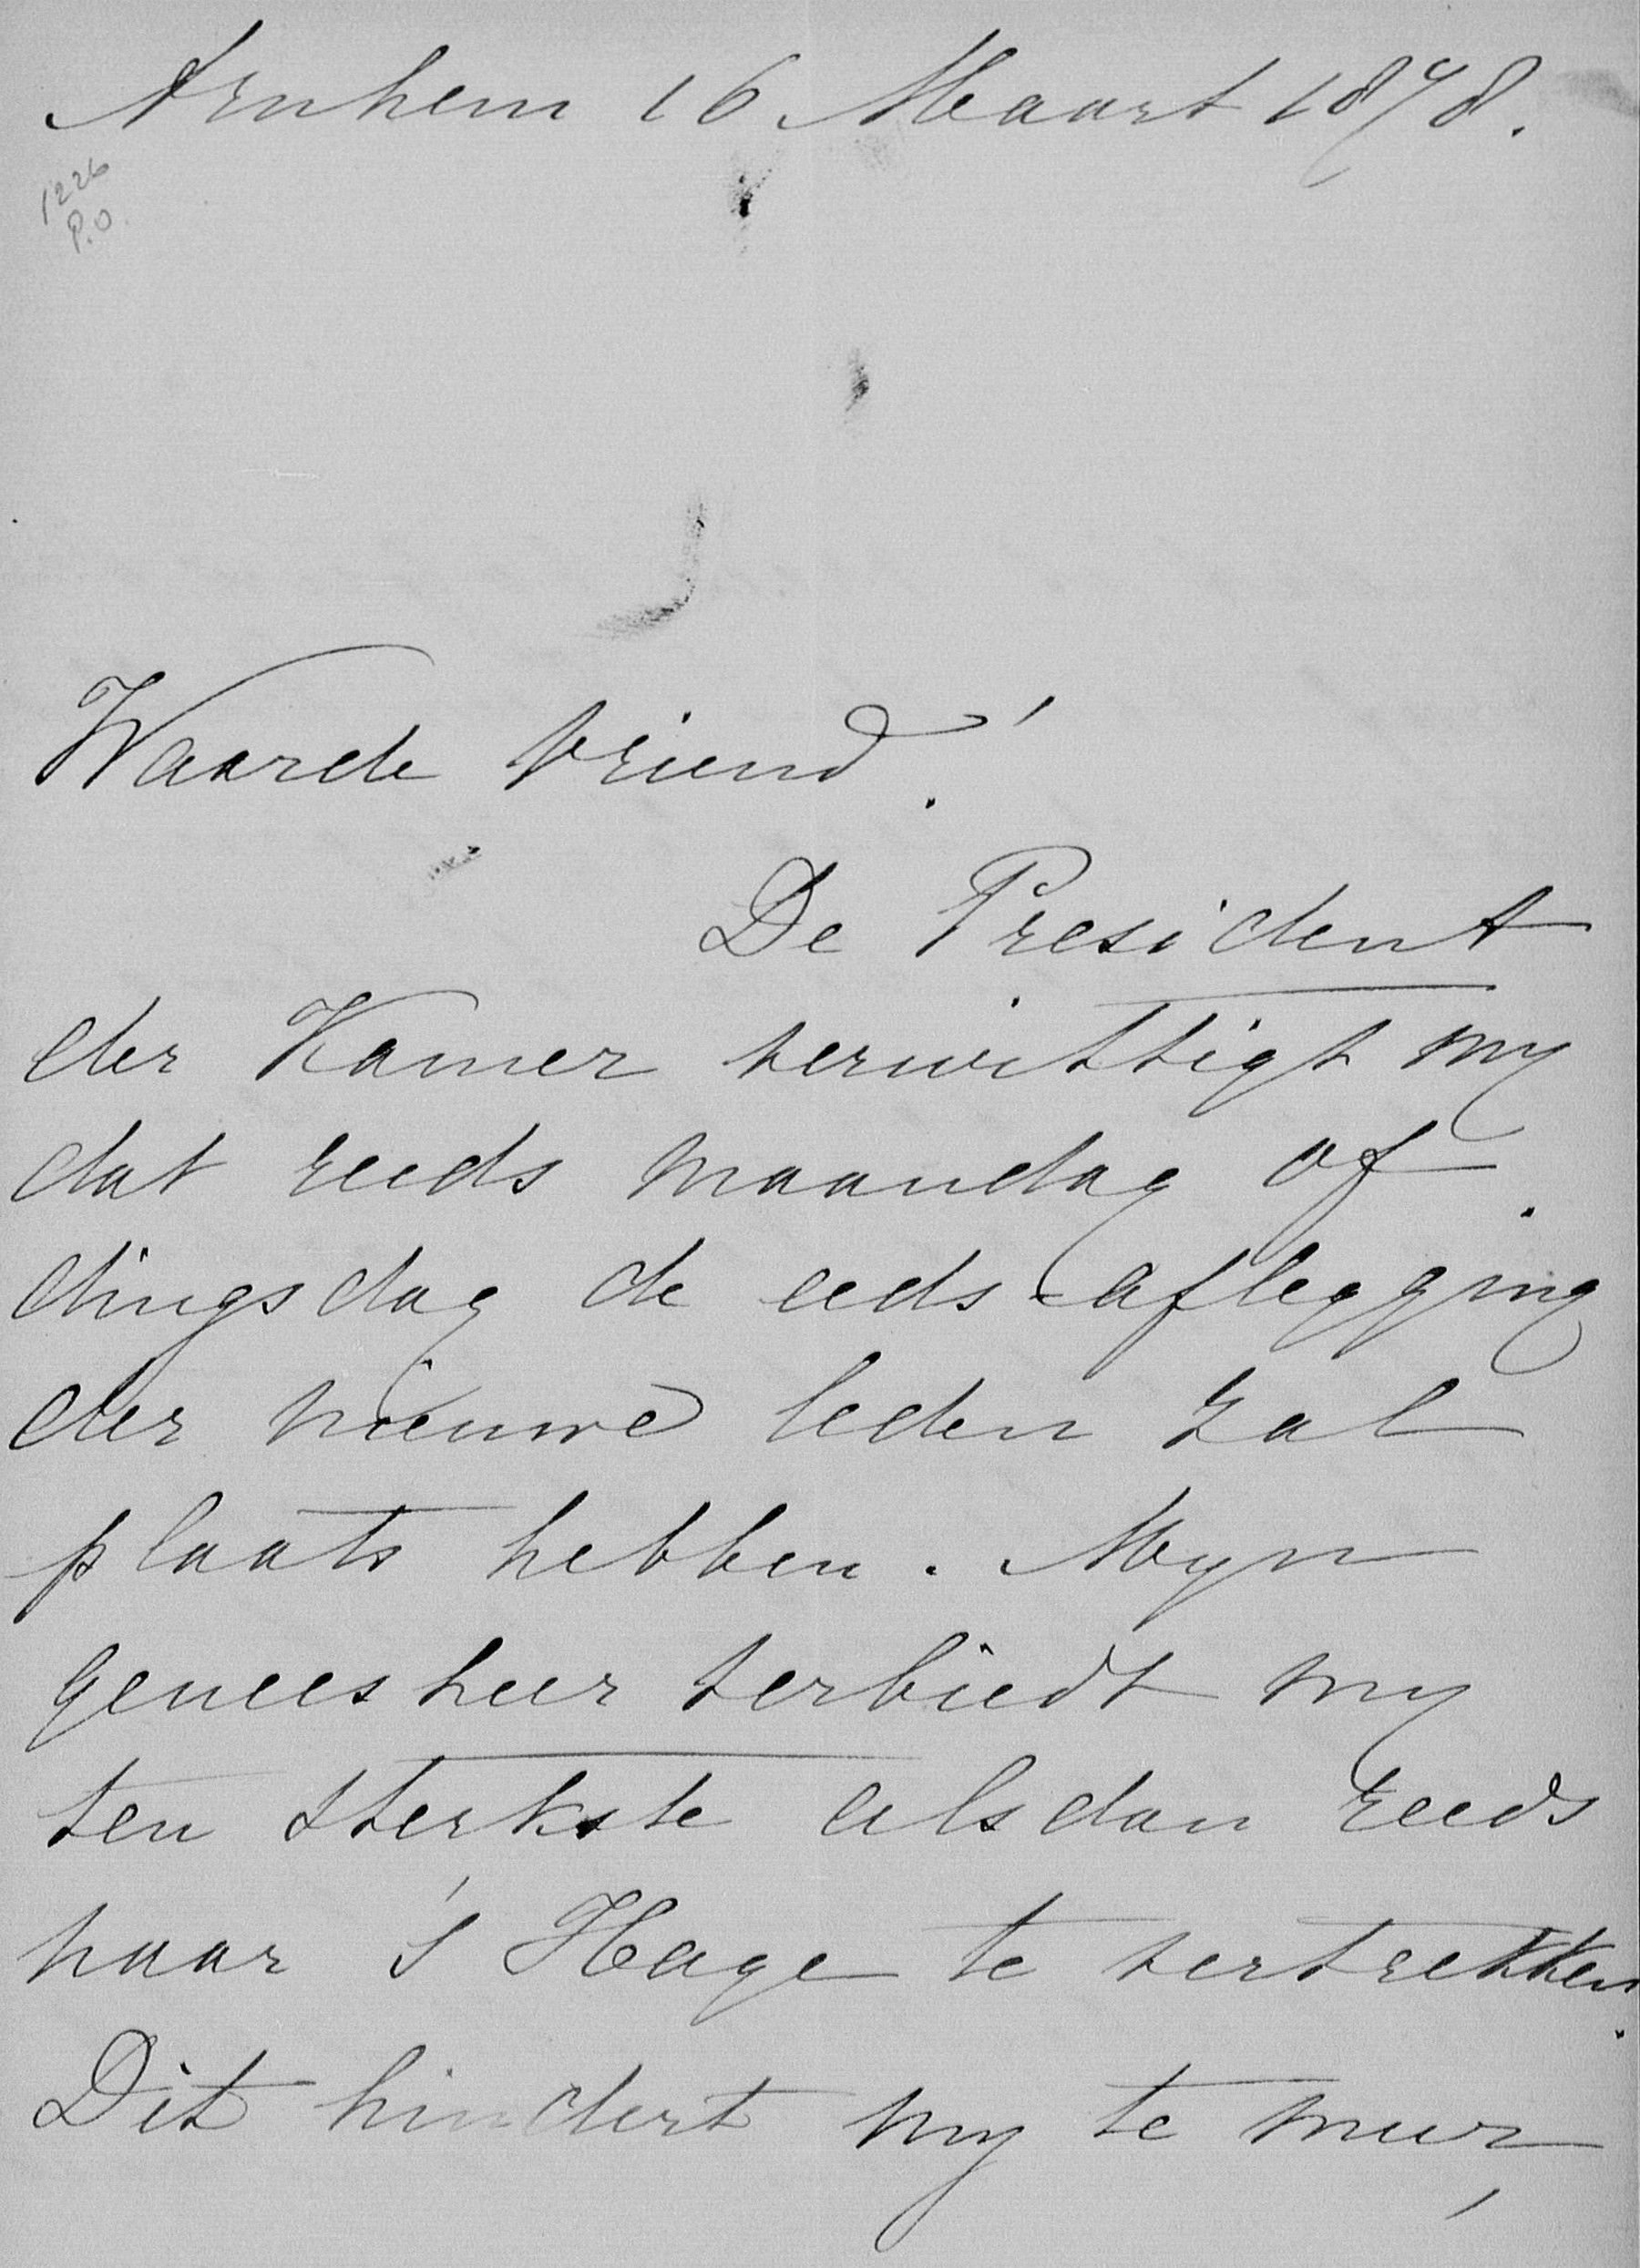 Arnhem 16 Maart 1878.
1226
P.O.
Waarde Vriend!
De President
der Kamer verwittigt my
dat reeds maandag of
dingsdag de eeds-aflegging
der nieuwe leden zal
plaats hebben. Myn
geneesheer verbiedt my
ten sterkste alsdan reeds
naar 's Hage te vertrekken.
Dit hindert my te meer,